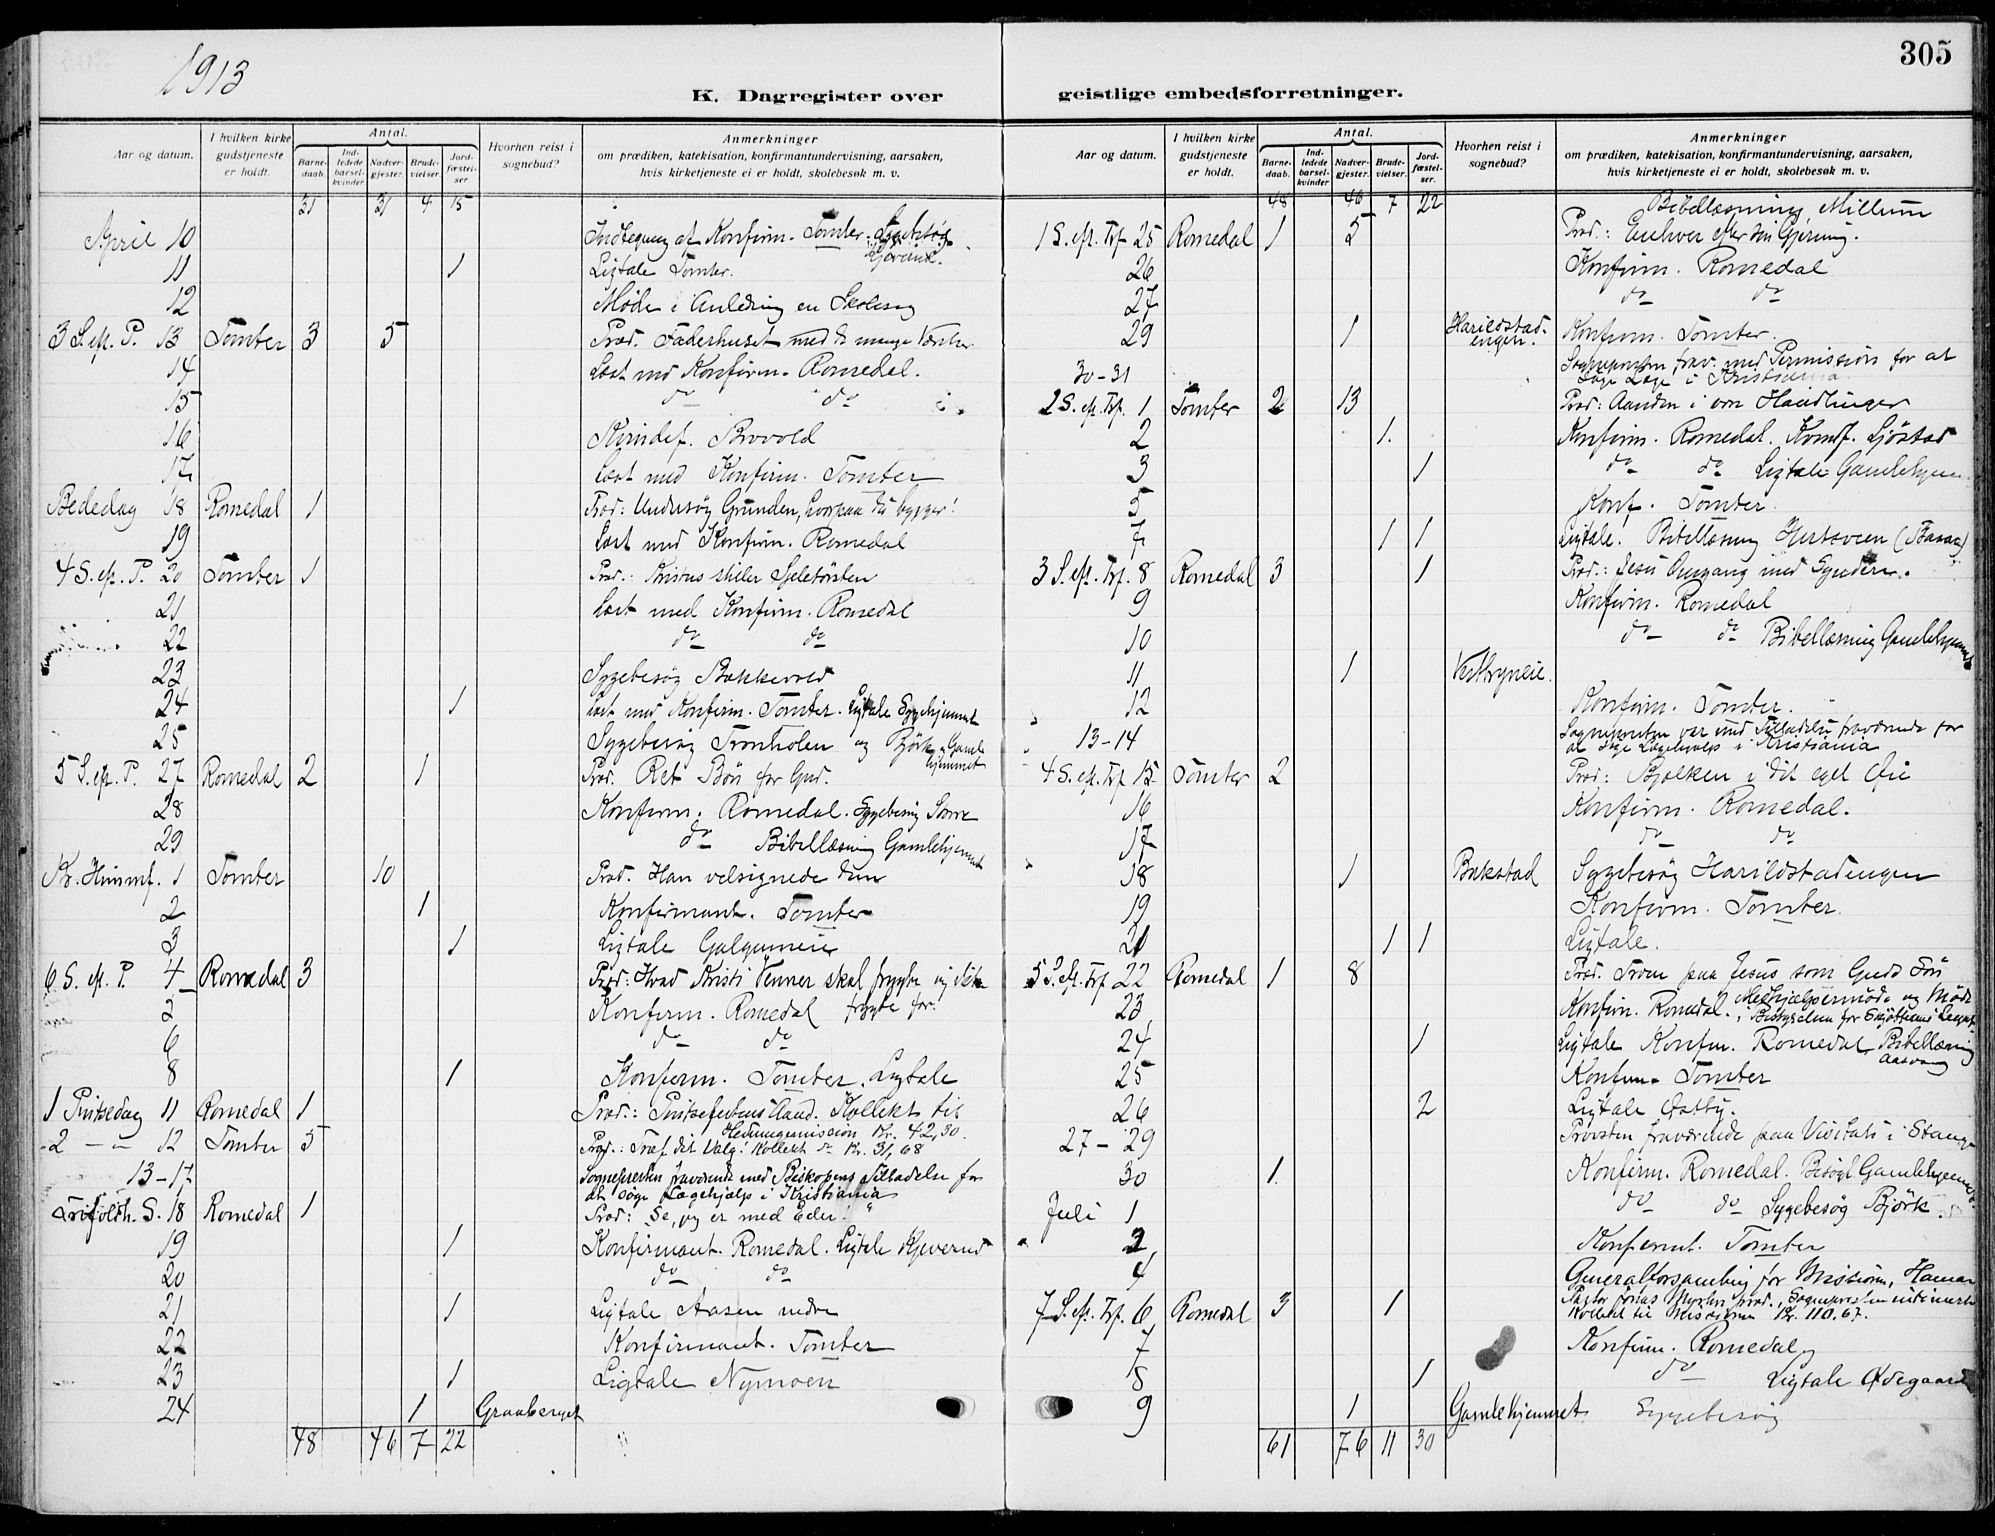 1913
305
K. Dagregister over geistlige embedsforretninger.
Aar og datum. I hvilken kirke gudstjeneste er holdt. Antal. Barne-daab. Ind-ledede barsel-kvinder. Nadver-gjester. Brude-vielser. Jord-fæstel-ser. Hvorhen reist i sognebud? Anmerkninger om prædiken, katekisation, konfirmantundervisning, aarsaken, hvis kirketjeneste ei er holdt, skolebesøk m. v.
31 31 4 15
April 10 Indtegning af Konfirm. Tomter.
11 1 Ligtale Tomter.
12 Møde i Anledning en Skolesag
3 S. eft. P. 13 Tomter 3 5 Præd. Faderhuset med de mange Værelser
14 Læst med Konfirm. Romedal.
15 do do
16 Kvindef. Brovold
17 Læst med Konfirm. Tomter
Bededag 18 Romedal 1 Præd: Undersøg Grunden, hvorpaa du bygger!
19 Læst med Konfirm. Romedal
4 S. eft. P. 20 Tomter 1 Præd.: Kristus stiller Sjeletörsten
21 Læst med Konfirm. Romedal
22 do do
23 Sygebesøg Bakkevold
24 1 Læst med Konfirm. Tomter. Ligtale Sygehjemmet
25 Sygebesøg Tronholen og Björk, Gamlehjemmet
5 S. eft. P. 27 Romedal 2 1 Præd. Ret Bön for Gud.
28 Konfirm. Romedal. Sygebesøg
29 do Bibellæsning Gamlehjemmet
Kr. Himmf. 1 Tomter 10 Præd. Han velsignede dem
2 1 Konfirmant. Tomter
3 1 Ligtale Galgumeie
6 S. eft. P. 4 Romedal 3 Præd: Hvad Kristi Venner skal frygte og ikke frygte for.
2 Konfirm. Romedal
6 do do
8 1 Konfirm. Tomter. Ligtale
1 Pintsedag 11 Romedal 1 Præd.: Pintsefestens Aand. Kollekt til Hedningemission Kr. 42,30.
2 - " - 12 Tomter 5 Præd.: Træf dit Valg! Kollekt do Kr. 31,68
13-17 Sognepresten fraværende med Biskopens Tilladelse for at søge Lægehjælp i Kristiania
Trifoldh. S. 18 Romedal 1 Præd: "Se, jeg er med Eder!"
19 1 Konfirmant. Romedal. Ligtale Kjeverud
20 do do
21 1 Ligtale Aasen nedre
22 Konfirmant. Tomter
23 1 Ligtale Nymoen
24 1 Graaberget
48 46 7 22
Aar og datum. I hvilken kirke gudstjeneste er holdt. Antal. Barne-daab. Ind-ledede barsel-kvinder. Nadver-gjester. Brude-vielser. Jord-fæstel-ser. Hvorhen reist i sognebud? Anmerkninger om prædiken, katekisation, konfirmantundervisning, aarsaken, hvis kirketjeneste ei er holdt, skolebesøk m. v.
48 46 7 22 Bibellæsning, Millum
1 S. eft. Trf. 25 Romedal 1 5 Præd.: Enhver efter sin Gjerning.
26 Konfirm. Romedal
27 do do
29 1 Harildstadengen. Konfirm. Tomter.
30-31 Sognepresten frav. med Permission for at søge Læge i Kristiania
2 S. eft. Trf. 1 Tomter 2 13 Præd: Aanden i vore Handlinger
2 1. Konfirm. Romedal. Kvindf. Sjöstad
3 1 do do Ligtale Gamlehjem.
5 Konf. Tomter
7 1 1 Ligtale. Bibellæsning
3 S. eft. Trf. 8 Romedal 3 1 Præd.: Jesu Omgang med Syndere.
9 Konfirm. Romedal
10 do do Bibellæsning Gamlehjemmet
11 1
12 Konfirm. Tomter.
13-14 Sognepresten var med Tilladelse fraværende for at søge Lægehjælp i Kristiania
4 S. eft. Trf. 15 Tomter 2 Præd: Bjælken i dit eget Øie
16 Konfirm. Romedal.
17 do do
18 1 Bakstad Sygebesøg Harildstadengen
19 Konfirm. Tomter.
21 1 1 Ligtale.
5 S. eft. Trf. 22 Romedal 1 8 Præd. Troen paa Jesus som Guds Sön
23 Konfirm. Romedal. Medhjælpermøde og Møde i Bestyrelsen for
24 1 Ligtale Konfm. Romedal, Bibellæsning Aasvang
25 Konfm. Tomter
26 2 Ligtale Østby.
27-29 Provsten fraværende paa Visitats i Stange
30 1. Konfirm. Romedal. Besøgt Gamlehjemmet
Juli 1 do do Sygebesøg Björk.
2 Konfirmt. Tomter
4 Generalforsamling for Missionen, Hamar
7 S. eft. Trf. 6 Romedal 3 1 Pastor Jonas præd., Sognepresten Kollekt til Missionen Kr. 110,67.
7 Konfirm. Romedal
8 1 do Ligtale Ødegaard
9 1 Gamlehjemmet Sygebesøg
61 76 11 30